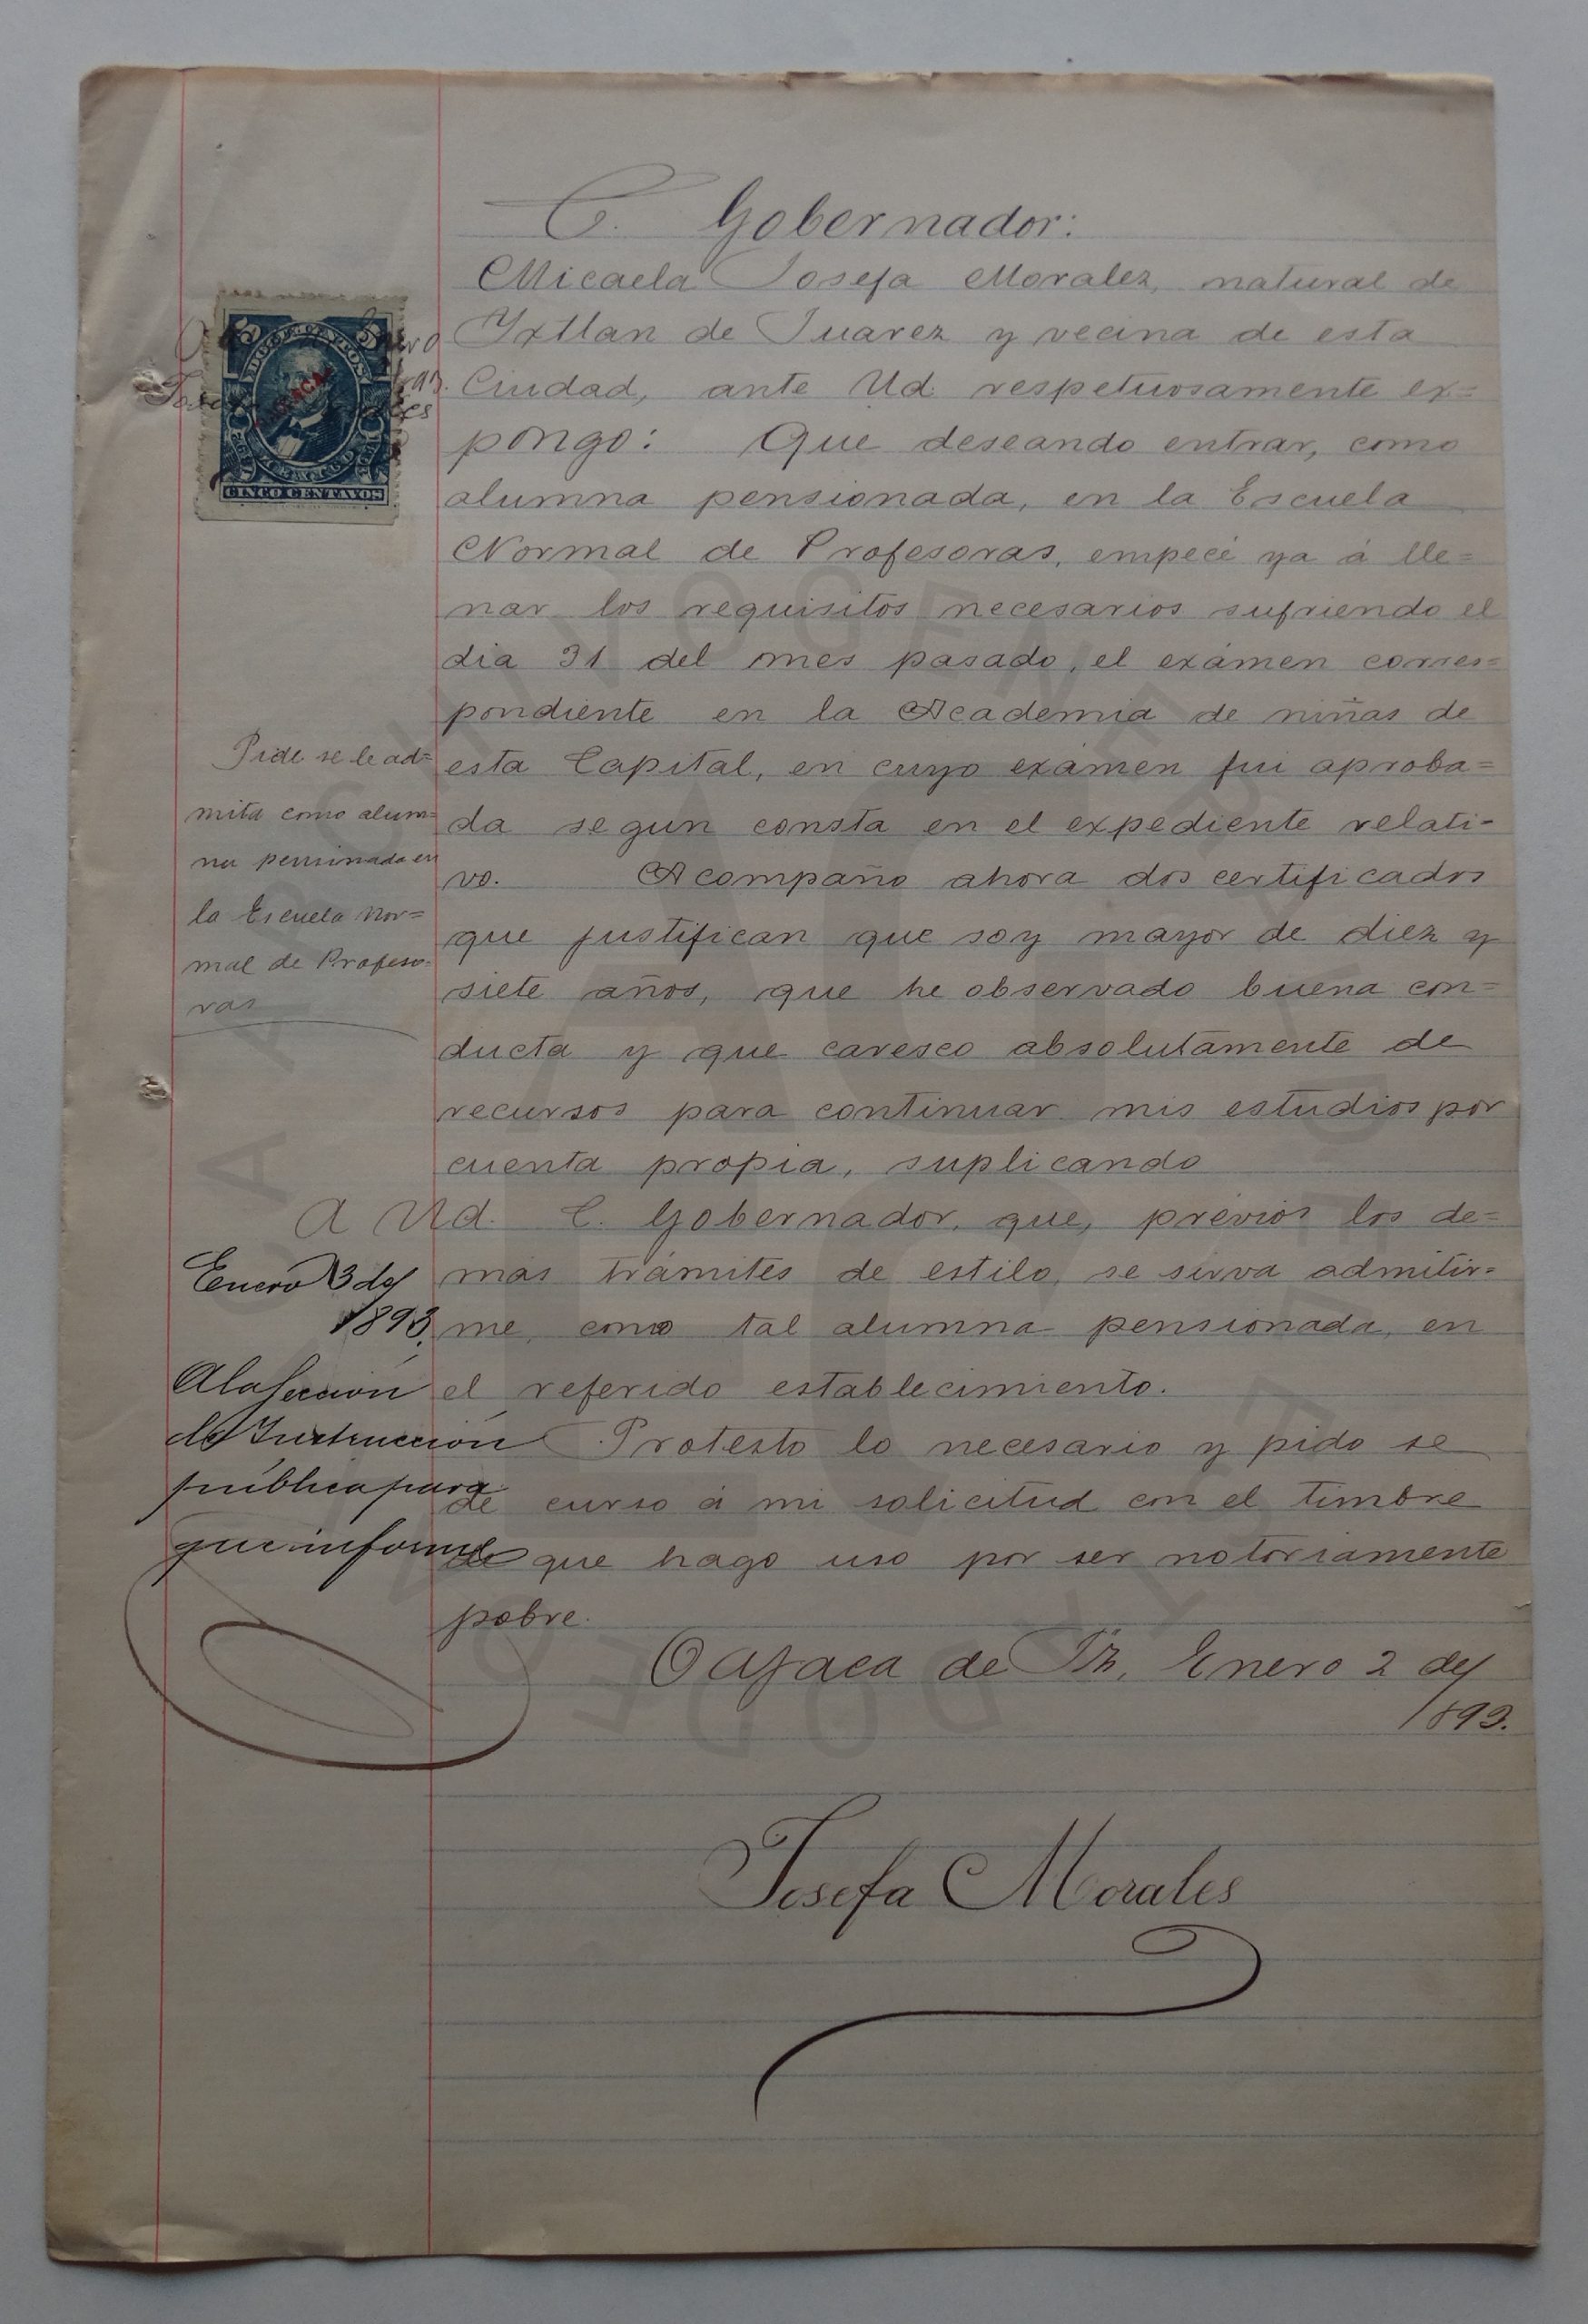 C. Gobernador:
Micaela Josefa Morales, natural de
Yxtlan de Juarez y vecina de esta
Ciudad, ante Ud. respetuosamente ex=
pongo: Que deseando entrar, como
alumna pensionada, en la Escuela
Normal de Profesoras, empecé ya á lle=
nar los requisitos necesarios sufriendo el
dia 31 del mes pasado, el exámen corres=
pondiente en la Academia de niñas de
esta Capital, en cuyo exámen fui aproba=
da segun consta en el expediente relati-
vo. Acompaño ahora dos certificados
que justifican que soy mayor de diez y
siete años, que he observado buena con=
ducta y que caresco absolutamente de
recursos para continuar mis estudios por
cuenta propia, suplicando
A Ud. C. Gobernador, que, previos los de=
mas trámites de estilo, se sirva admitir=
me, como tal alumna pensionada, en
el referido establecimiento.
Protesto lo necesario y pido se
dé curso á mi solicitud con el timbre
de que hago uso por ser notoriamente
pobre.
Oajaca de Jz, Enero 2 de
1893.
Josefa Morales
CINCO CENTAVOS
Pide se le ad=
mita como alum=
na pensinada en
la Escuela Nor=
mal de Profeso=
ras
Enero 3 de
1893.
A la Seccion
de Instruccion
pública para
que informe